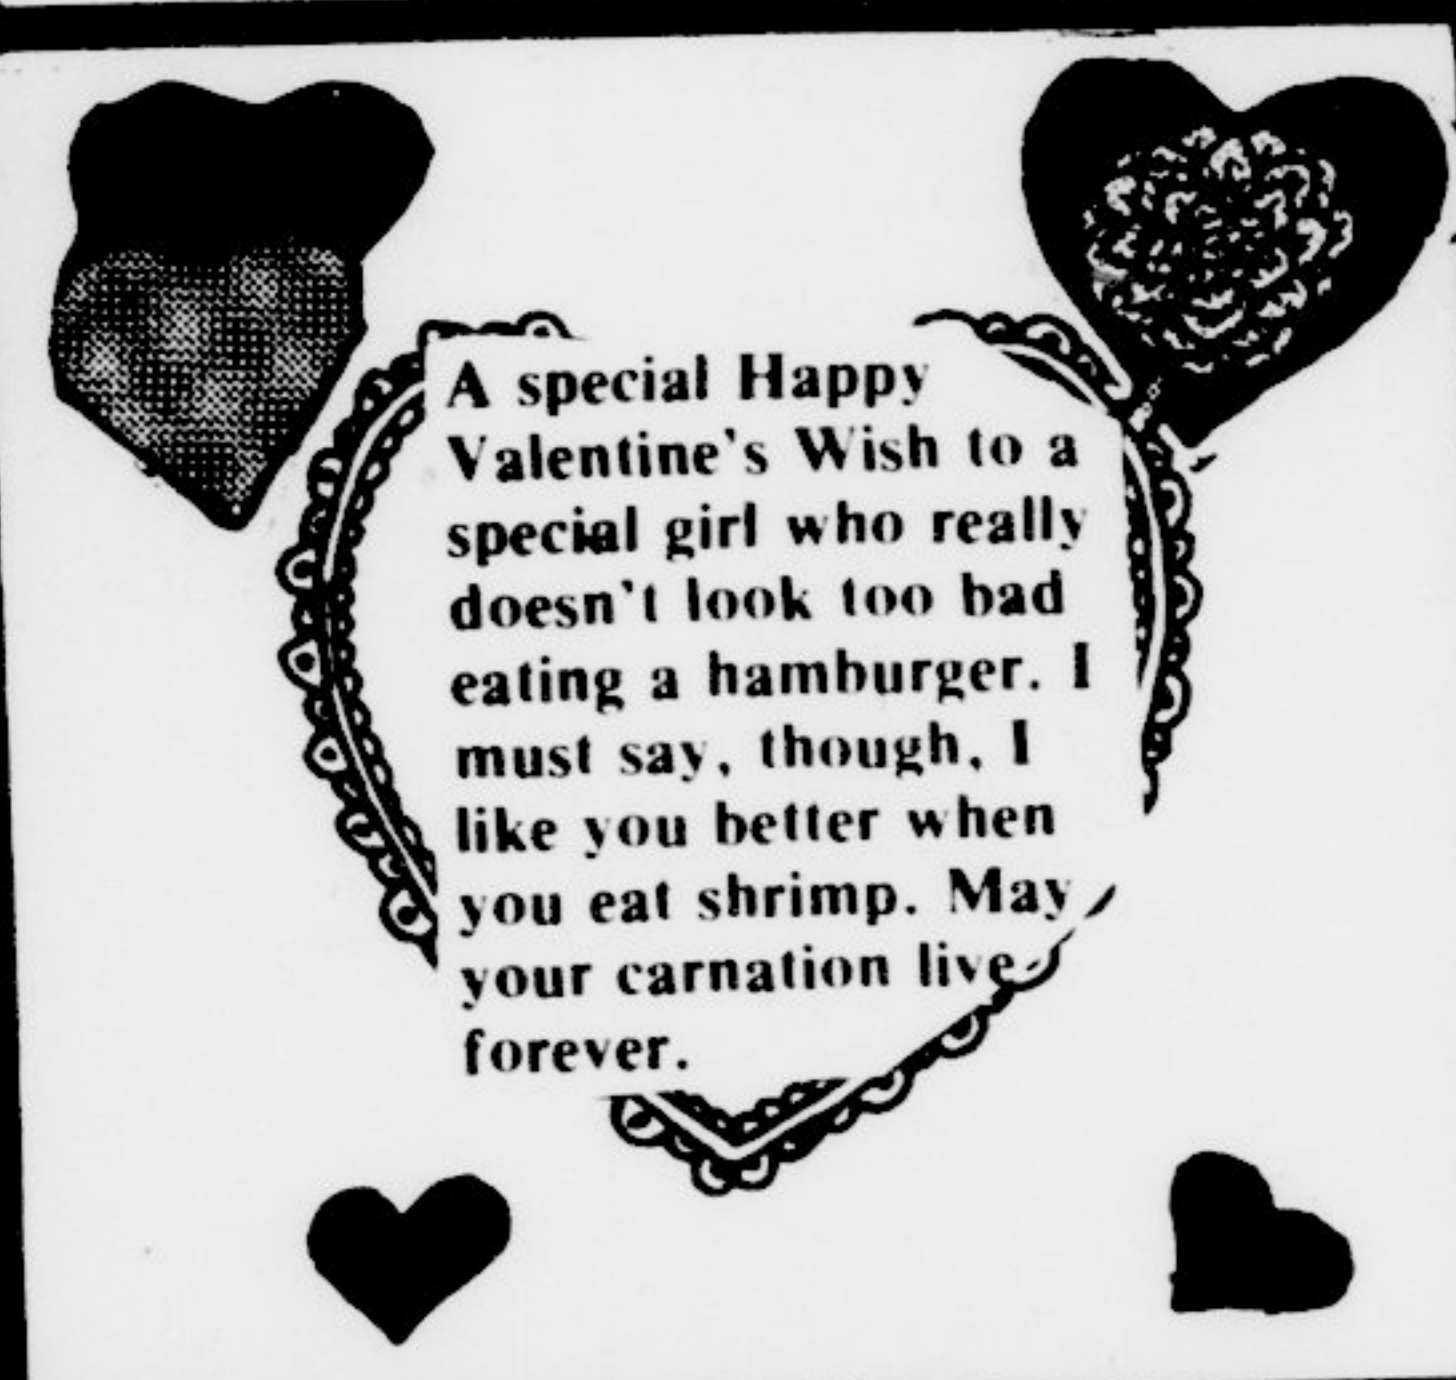 A special Happy
Valentine's Wish to a
special girl who really
doesn't look too bad
eating a hamburger. I
must say, though, I
like you better when
you eat shrimp. May
your carnation live
forever.